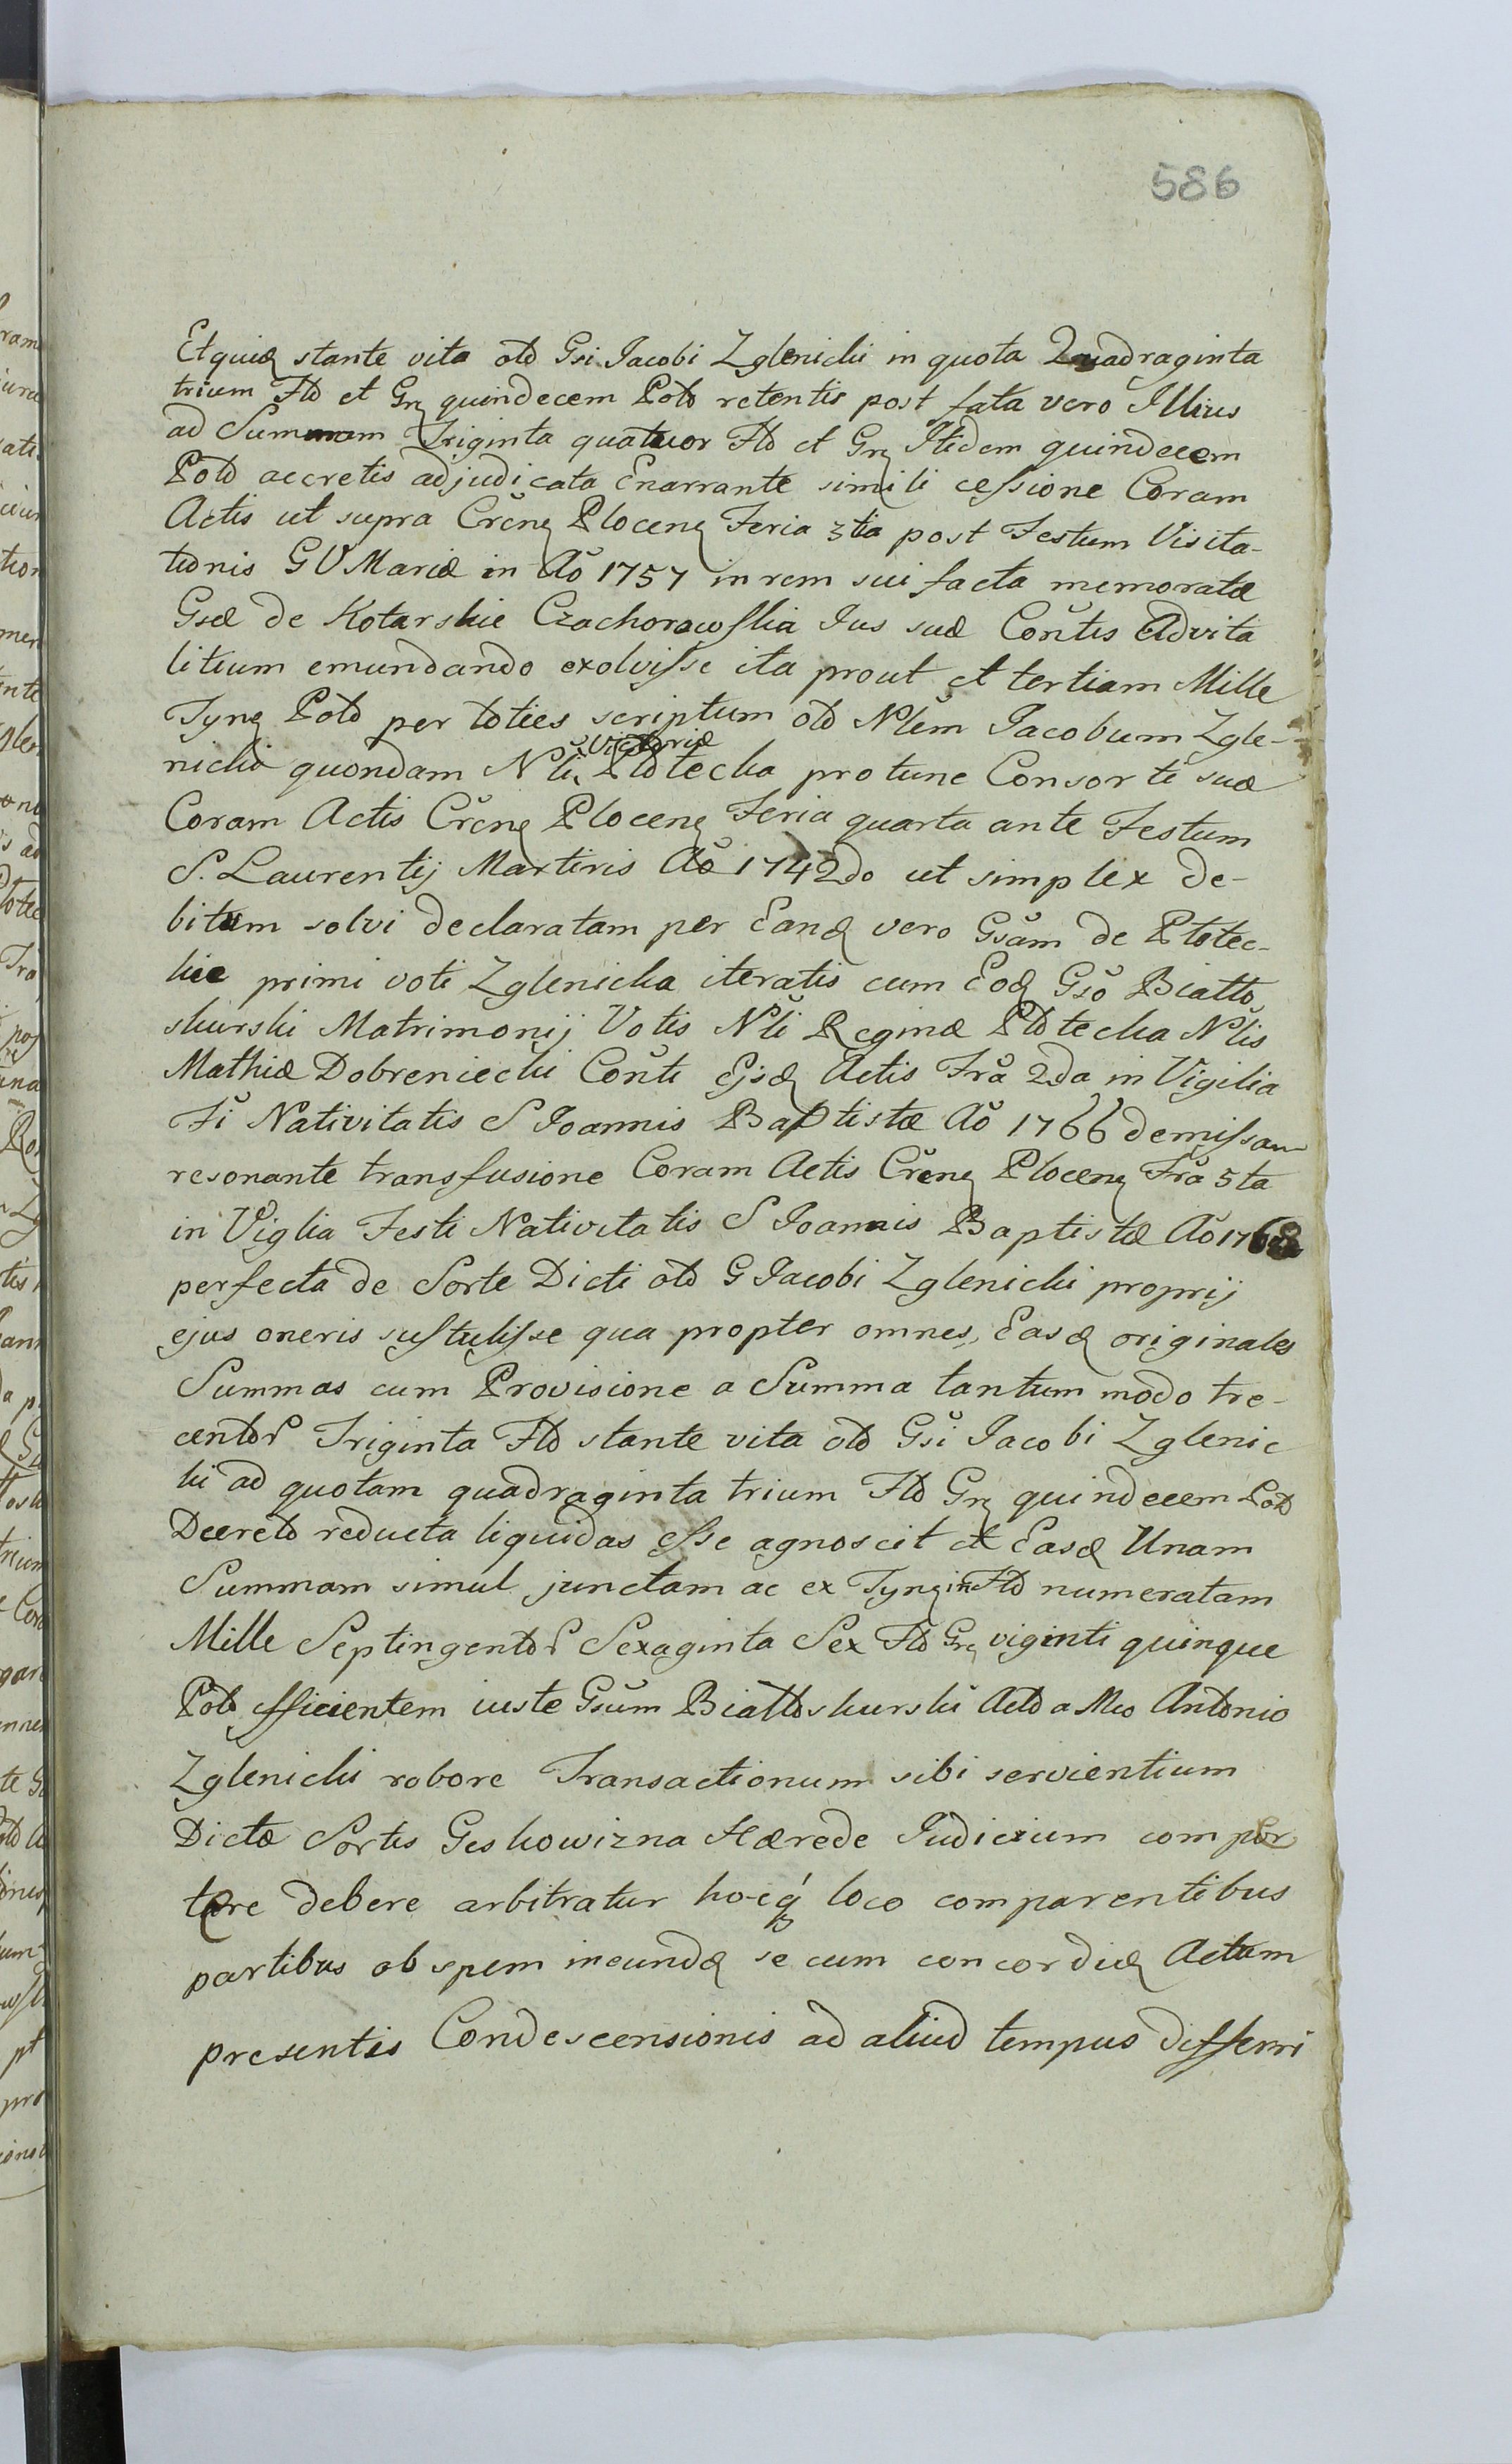 586
Et quiæ stante vita olo Gsi Jacobi Zglenicki in quota Quadraginta
trium Flo et Grꝫ quindecem Polo retentis post fata vero Illius
ad Summam Triginta quatuor Flo et Grꝫ Itidem quindecem
Polo accretis adjudicata Enarrante simili cessione Coram
Actis ut supra Crčnꝫ Plocenꝫ Feria 3tia post Festum Visita-
tionis GVMariæ in Aõ 1757 in rem sui facta memoratæ
Gsæ de Kotarskie Czachorowskia Jus suæ Contis Advita
litium emundando exolvisse ita prout et tertiam Mille
Tynꝫ Polo per toties scriptum olo Nlem Jacobum Zgle-
nicki quondam Nli Victoriæ Plotecka pro tunc Consorti suæ
Coram Actis Crčnꝫ Plocenꝫ Feria quarta ante Festum
S. Laurentij Martiris Aõ 1742do ut simplex de-
bitum solvi declaratam per Eandꝫ vero Gsam de Plotec-
kie primi voti Zglenicka iteratis cum Eodꝫ Gso Biallo
skurski Matrimonij Votis Nli Reginæ Plotecka Nlis
Mathiæ Dobreniecki Conti Ejsdꝫ Actis Fra 2da in Vigilia
Fi Nativitatis S Joannis Baptistæ Aõ 1766 demissam
resonante transfusione Coram Actis Crčnꝫ Plocenꝫ Fra 5ta
in Viglia Festi Nativitatis S Joannis Baptistæ Aõ 1768
perfecta de Sorte Dicti olo G Jacobi Zglenicki proprij
ejus oneris sustulisse qua propter omnes, Easdꝫ originales
Summas cum Provisione a Summa tantum modo tre-
centor Triginta Flo stante vita olo Gsi Jacobi Zglenic
ki ad quotam quadraginta trium Flo Grꝫ quindecem Polo
Decreto reducta liquidas esse agnoscit et Easdꝫ Unam
Summam simul junctam ac ex Tynꝫ in Flo numeratam
Mille Septingentor Sexaginta Sex Flo Grꝫ viginti quinque
Polo efficientem iuste Gsum Bialloskurski Acto a Mco Antonio
Zglenicki robore Transactionum sibi servientium
Dictæ Sortis Geskowizna Hærede Judicium compor
tare debere arbitratur hocq́ loco comparentibus
partibus ob spem ineundæ se cum concordiæ Actum
presentis Condescensionis ad aliud tempus differri